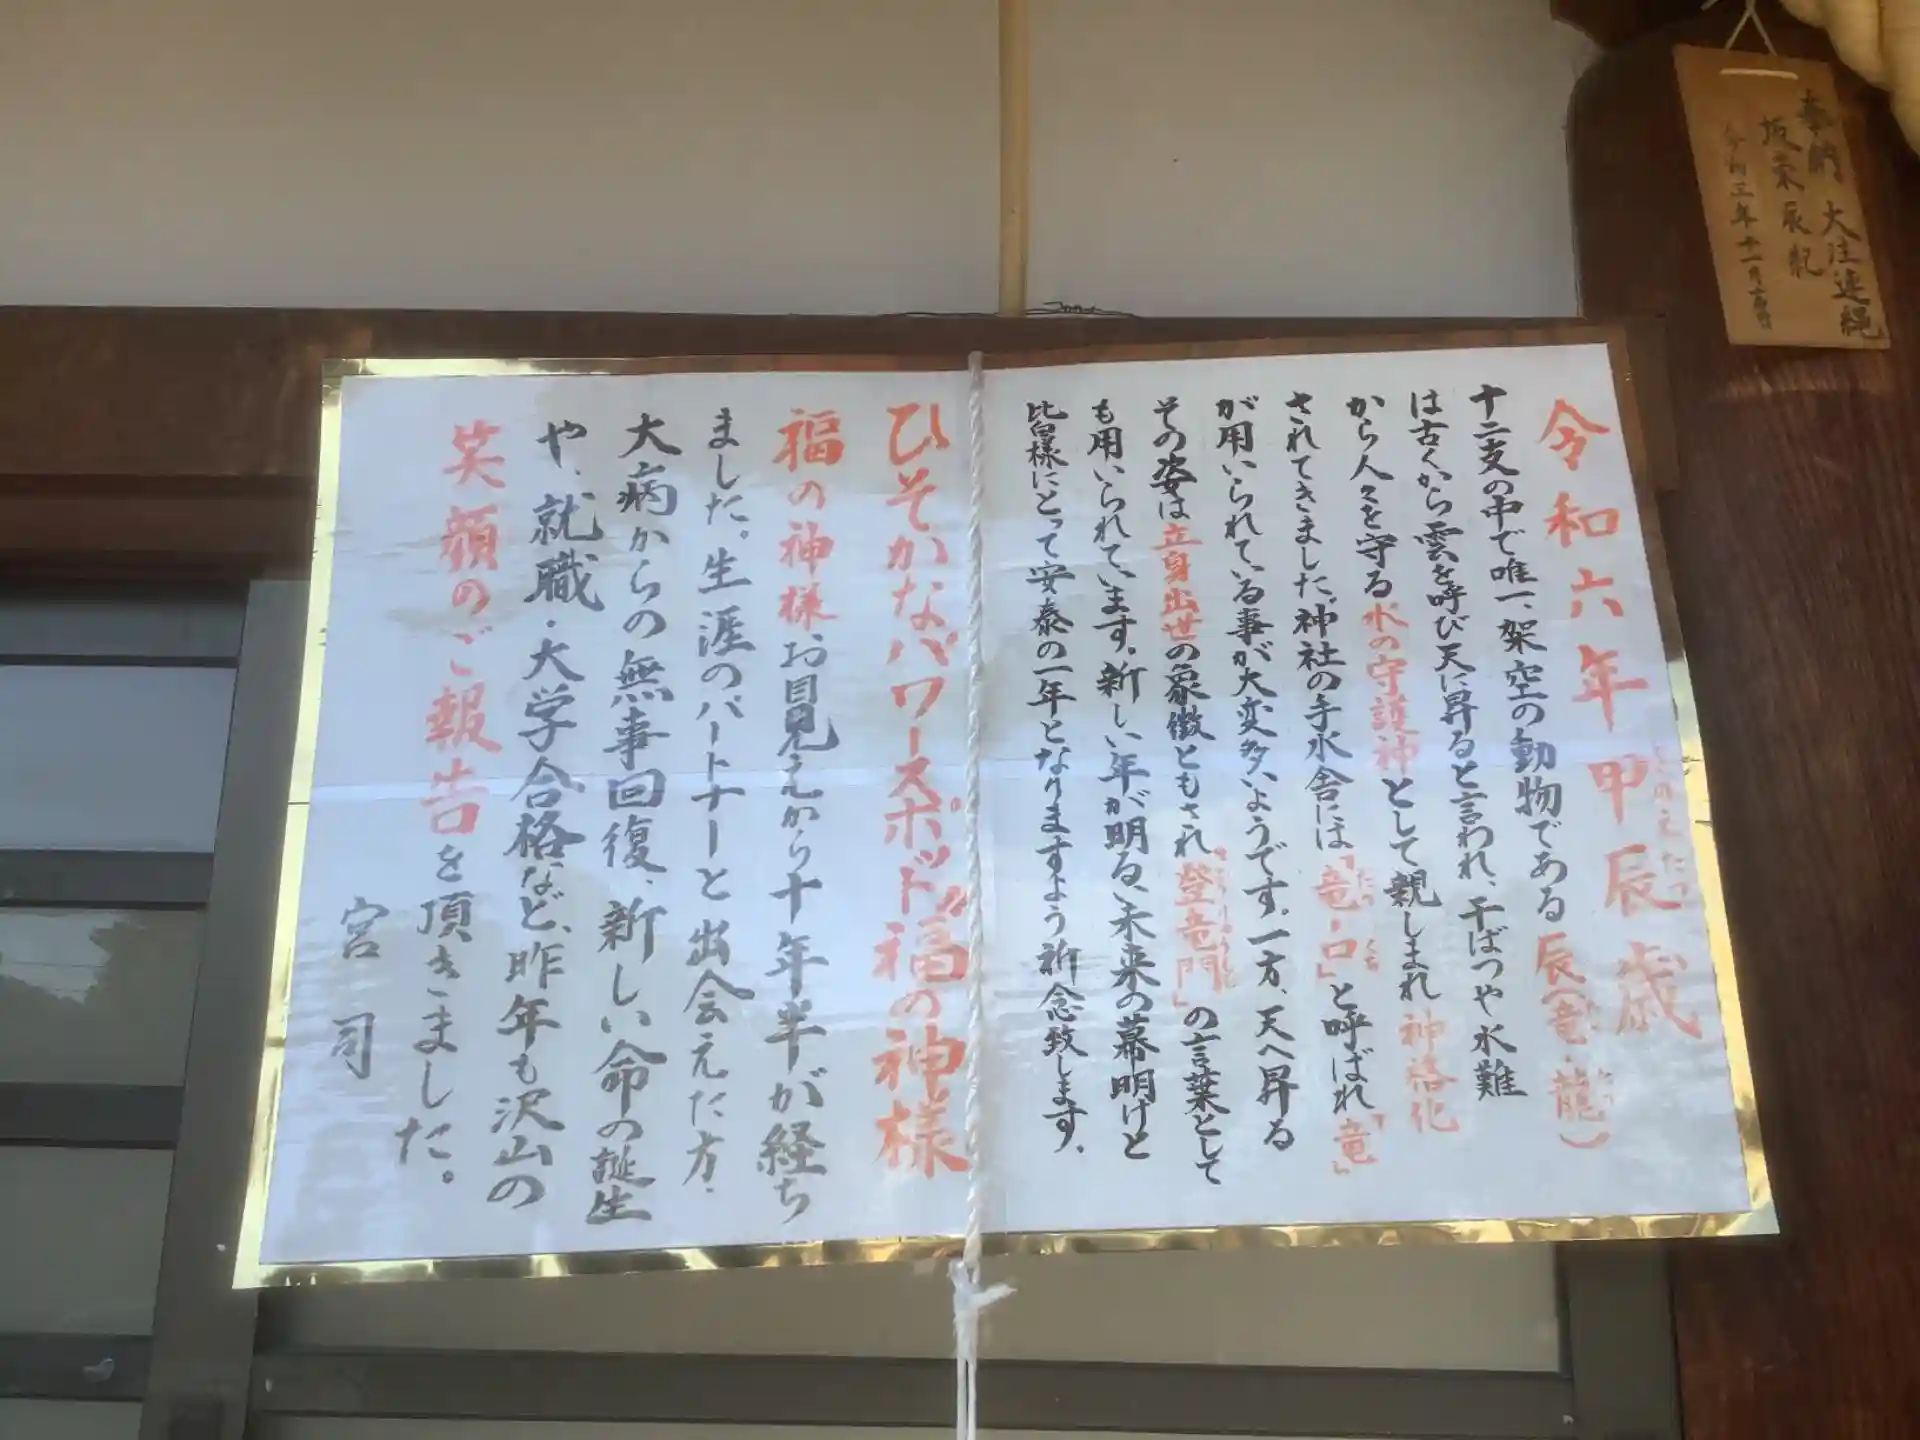 奉納 大注連縄
令和三年十一月吉日
令和六年甲辰歳
きのえたつ
十二支の中で唯一、架空の動物である辰(竜・龍)
は古くから雲を呼び天に昇ると言われ、干ばつや水難
から人々を守る水の守護神として親しまれ神格化
されてきました。神社の手水舎には「竜・口」と呼ばれ「竜」
たつ くち
が用いられている事が大変多いようです。一方、天へ昇る
その姿は立身出世の象徴ともされ「登竜門」の言葉として
とうりゅうもん
も用いられています。新しい年が明るい未来の幕明けと
皆様にとって安泰の一年となりますよう祈念致します。
ひそかなパワースポット“福の神様
福の神様お目見えから十年半が経ち
ました。生涯のパートナーと出会えた方・
大病からの無事回復、新しい命の誕生
や、就職・大学合格など、昨年も沢山の
笑顔のご報告を頂きました。
宮司